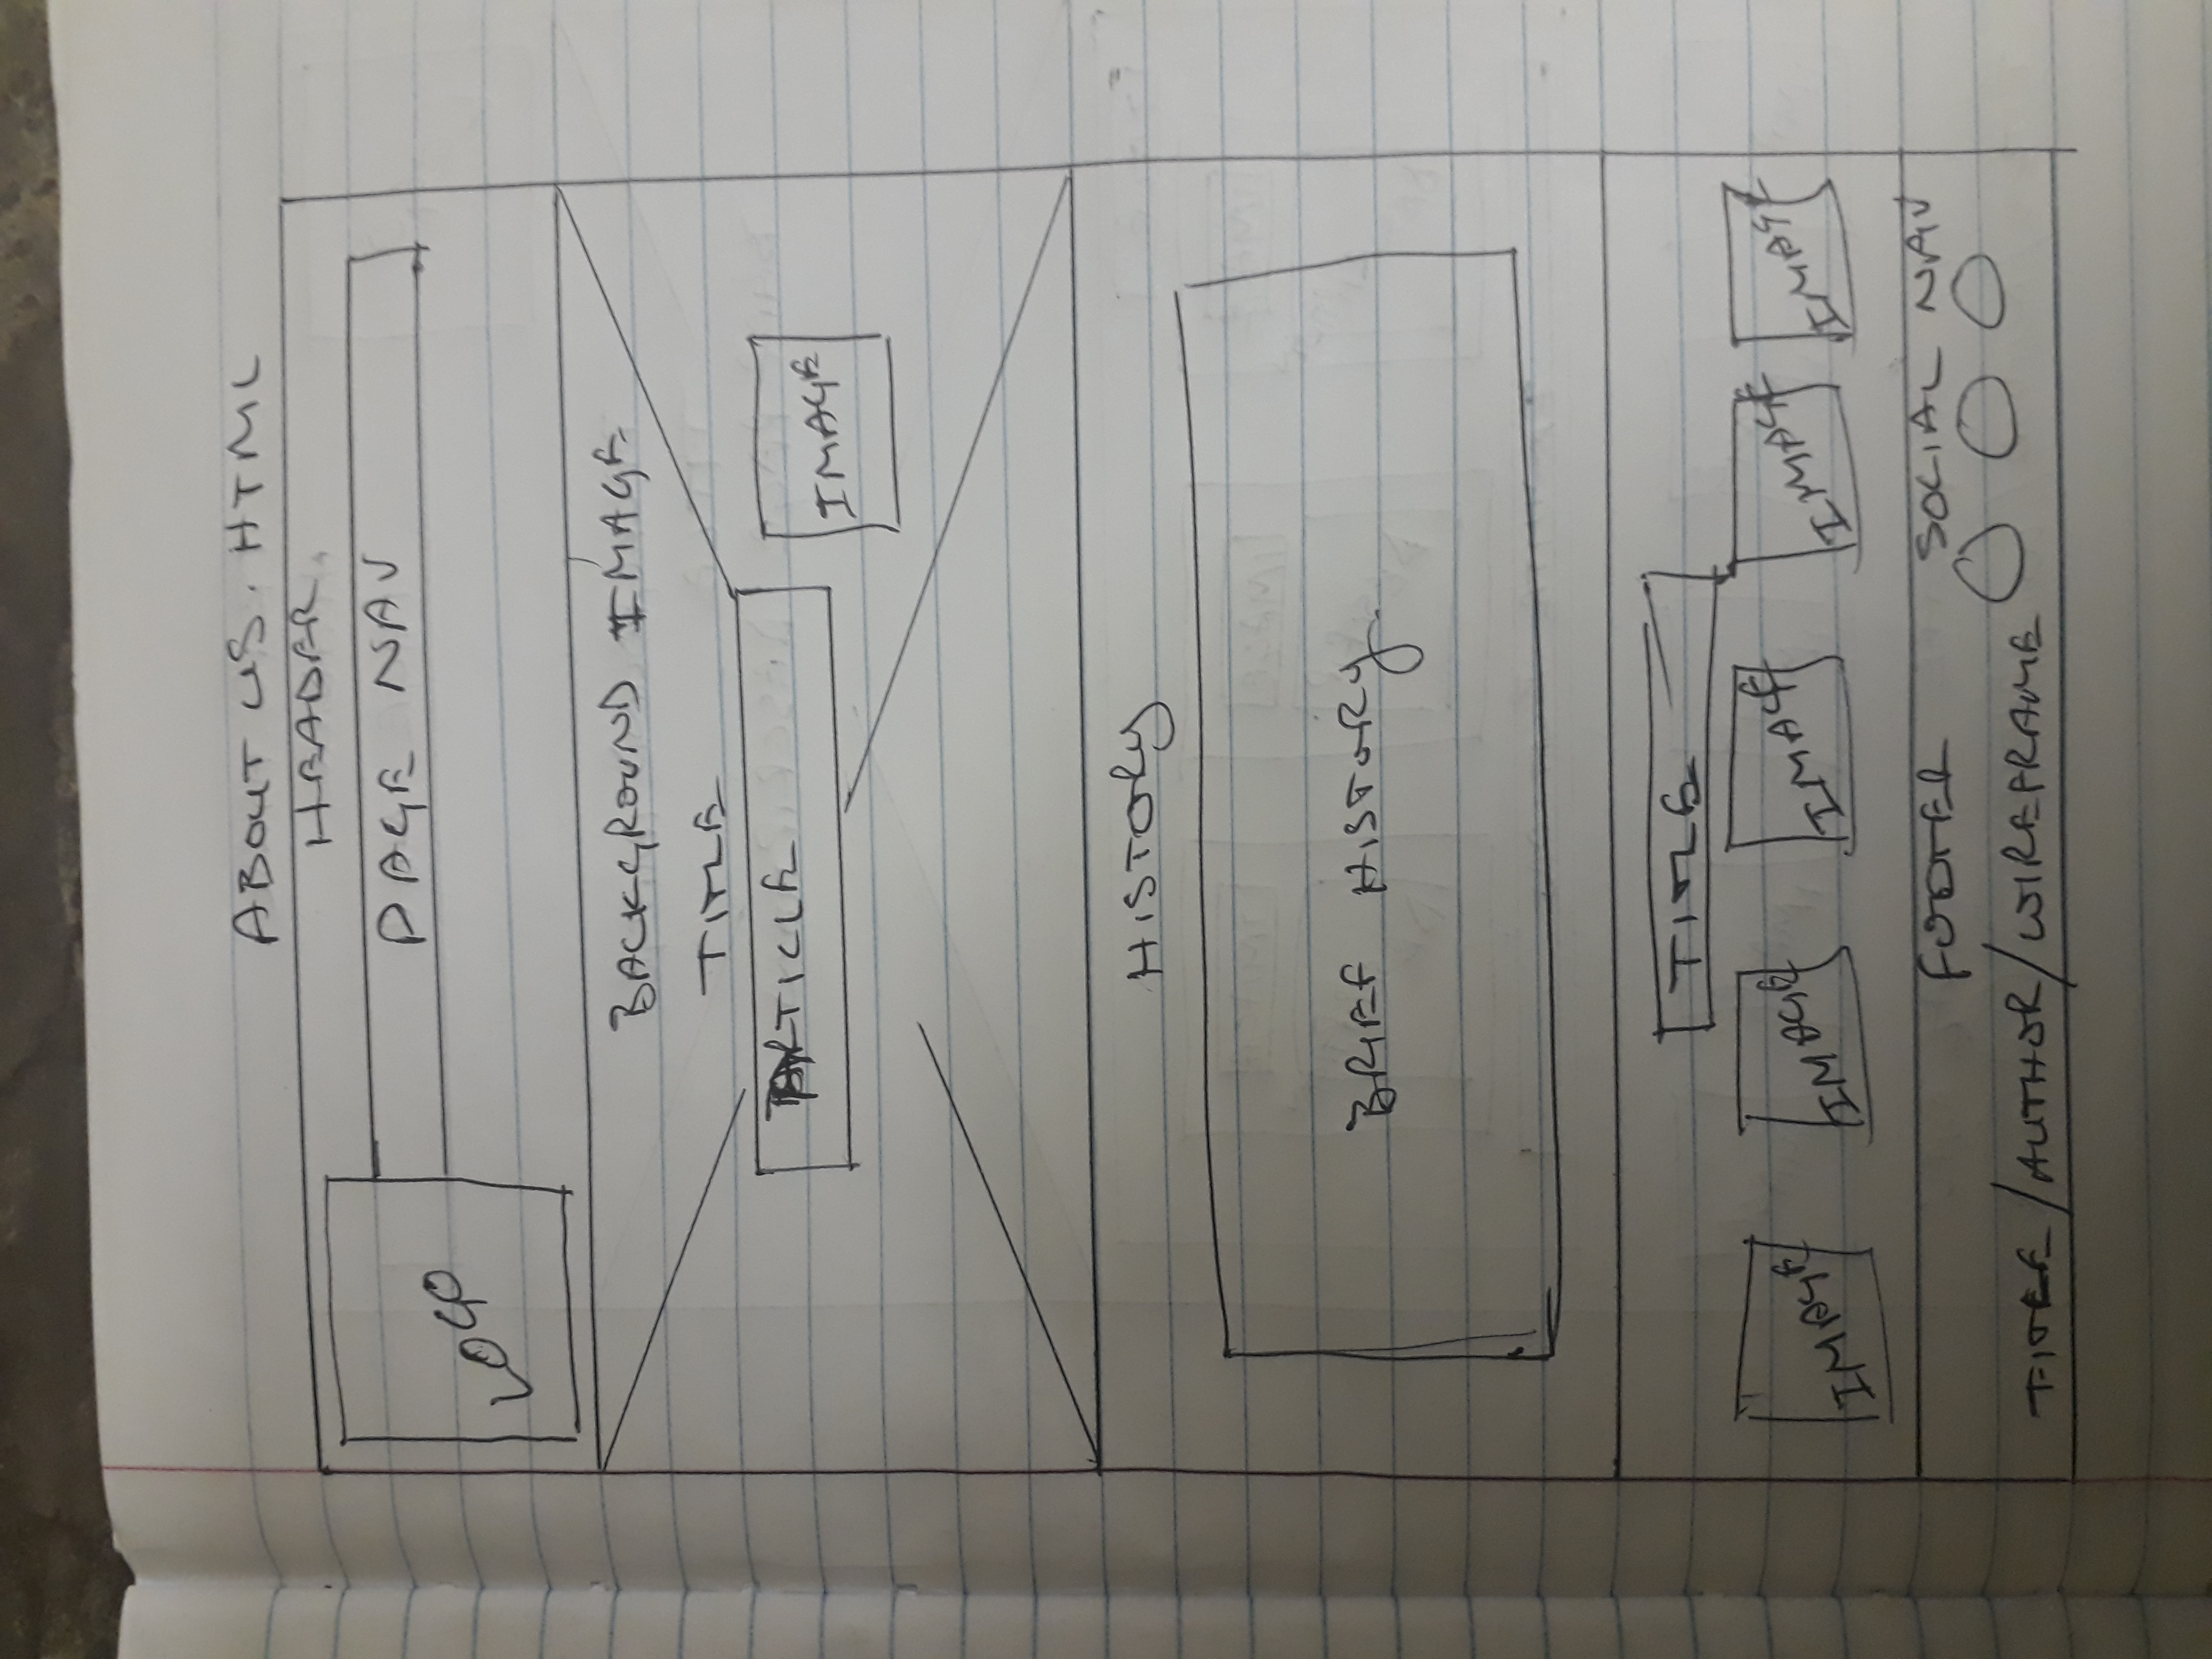 ABOUT US. HTML
HEADER
PAGE NAV
LOGO
BACKGROUND IMAGE
TITLE
ARTICLE
IMAGE
HISTORY
BRIEF HISTORY
TITLE
IMAGE IMAGE IMAGE IMAGE IMAGE
FOOTER SOCIAL NAV
TITLE/AUTHOR/WIREFRAME